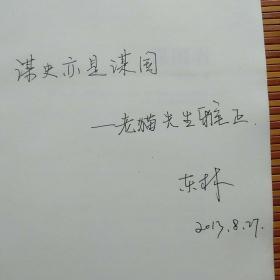 谋史亦是谋国
—老猫先生雅正.
东林
2013.8.27.